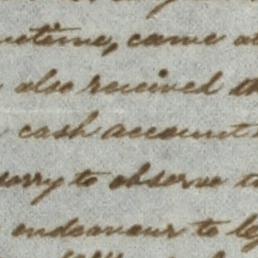 came
also received
cash account
sorry to observe
endeavour to